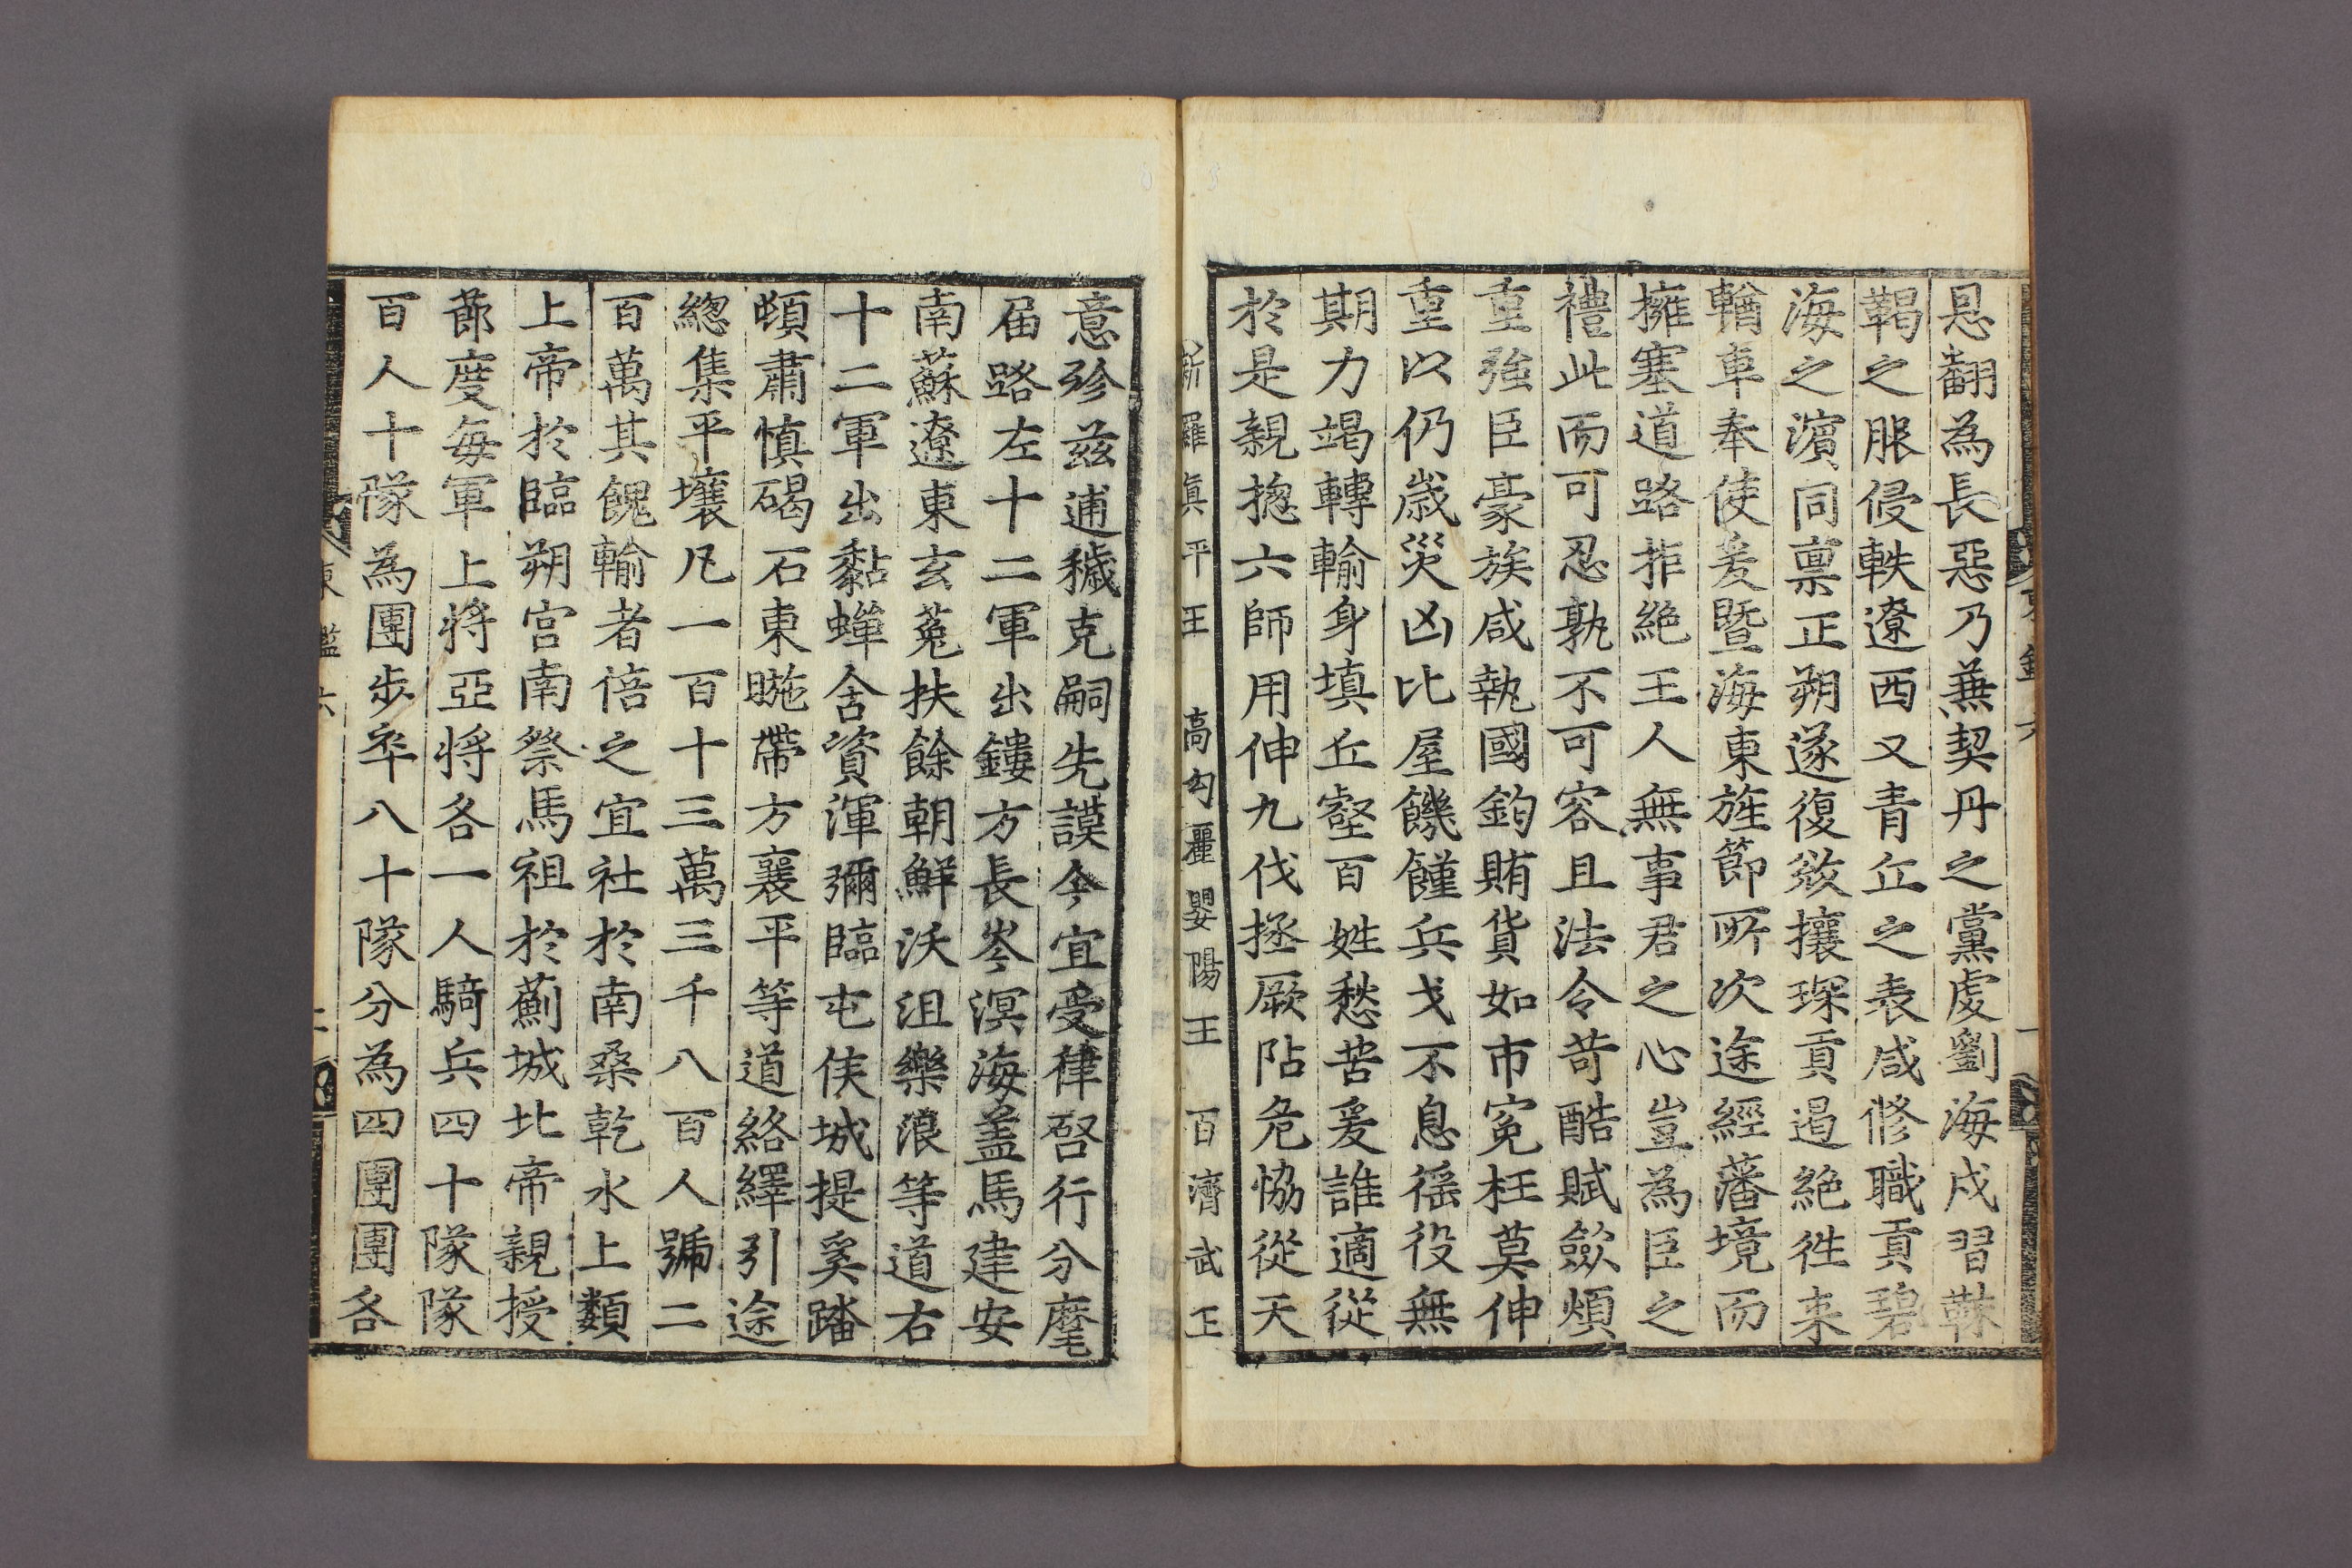 恩翻為長惡乃兼契丹之黨虔劉海戍習靺
鞨之服侵軼遼西又青丘之表咸修職貢碧
海之濱同禀正朔遂復敓攘琛貢遏絶徃来
輶車奉使爰暨海東旌節所次途經藩境而
擁塞道路拒絶王人無事君之心豈為臣之
禮此而可忍孰不可容且法令苛酷賦歛煩
重強臣豪族咸執國鈞賄貨如市寃枉莫伸
重以仍歳災凶比屋饑饉兵戈不息徭役無
期力竭轉輸身填丘壑百姓愁苦爰誰適從
於是親摠六師用伸九伐拯厥阽危恊從天
新羅真平王 高勾麗嬰陽王 百濟武王
意殄兹逋穢克嗣先謨今宜受律啓行分麾
届路左十二軍出鏤方長岑溟海盖馬建安
南蘇遼東玄菟扶餘朝鮮沃沮樂浪等道右
十二軍出黏蟬含資渾彌臨屯候城提奚踏
頓肅慎碣石東暆帶方襄平等道絡繹引途
緫集平壤凡一百十三萬三千八百人號二
百萬其餽輸者倍之宜社於南桑乾水上類
上帝於臨朔宫南祭馬祖於薊城北帝親授
莭度每軍上将亞将各一人騎兵四十隊隊
百人十隊為團步卒八十隊分為四團團各
東鑑六